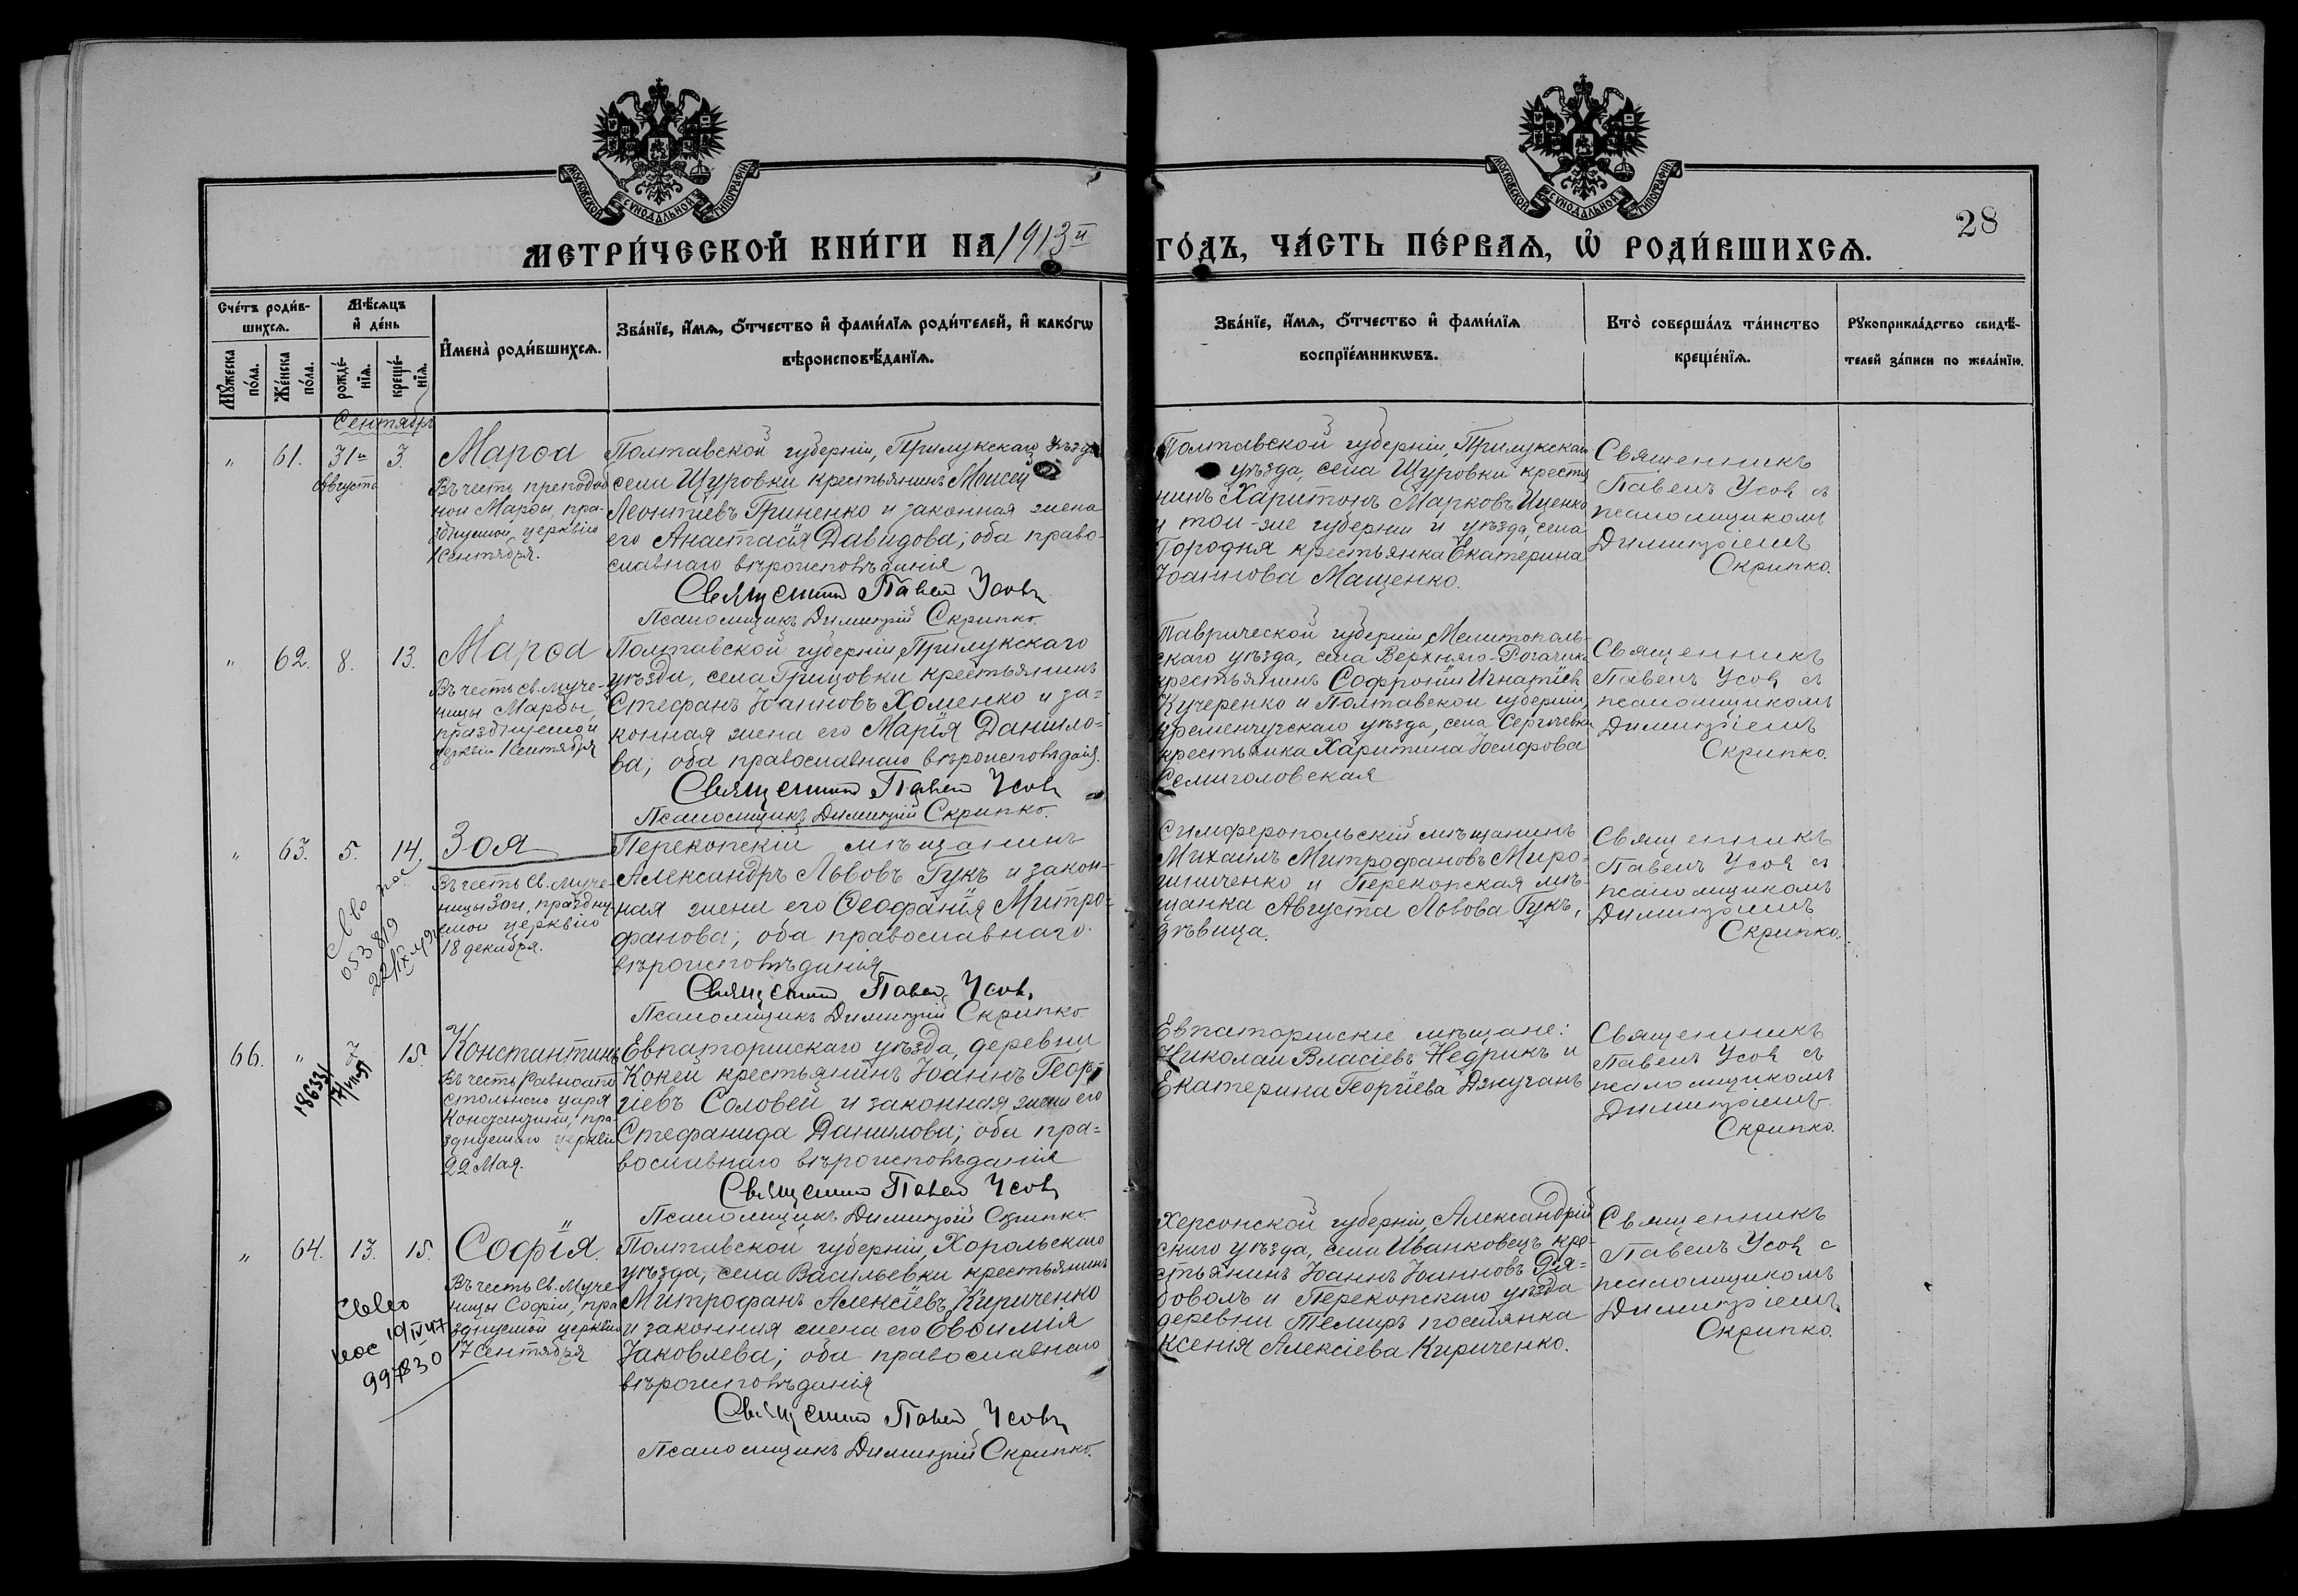 МОСКОВСКОЙ СѴНОДАЛЬНОЙ ТИПОГРАФІИ
МОСКОВСКОЙ СѴНОДАЛЬНОЙ ТИПОГРАФІИ
28
МЕТРИ́ЧЕСКОЙ КНИ́ГИ НА 1913й ГО́ДЪ, ЧА́СТЬ ПЕ́РВАѦ, Ѽ РОДИ́ВШИХСѦ.
Сче́тъ роди́в-
шихсѧ.
Мꙋ́жеска по́ла.
Же́нска по́ла.
Мѣ́сѧцъ
и҆ де́нь
рожде́-
нїѧ.
креще́-
нїѧ.
И҆мена̀ роди́вшихсѧ.
Зва́нїе, и҆́мѧ, ѻ҆́тчество и҆ фами́лїѧ роди́телей, и҆ како́гѡ
вѣроисповѣ́данїѧ.
Зва́нїе, и҆́мѧ, ѻ҆́тчество и҆ фами́лїѧ
воспрїе́мникѡвъ.
Кто̀ соверша́лъ та́инство
креще́нїѧ.
Рꙋкоприкла́дство свидѣ́-
телей за́писи по жела́нїю.
Сентябрь
" 61. 31го 3.
Августа
Марѳа
Въ честь преподоб
ной Марѳы, пра-
зднуемой церквію
1 Сентября.
Полтавской губерніи, Прилукскаго уѣзда
села Щуровки крестьянинъ Моисей
Леонтіевъ Гриненко и законная жена
его Анастасія Давидова; оба право-
славнаго вѣроисповѣданія
Священникъ Павелъ Усовъ
Псаломщикъ Димитрій Скрипко.
Полтавской губерніи, Прилукскаго
уѣзда, села Щуровки крестья
нинъ Харитонъ Марковъ Ищенко
и той-же губерніи и уѣзда, села
Городня крестьянка Екатерина
Іоаннова Мащенко.
Священникъ
Павелъ Усовъ съ
псаломщикомъ
Димитріемъ
Скрипко.
" 62. 8. 13.
Марѳа
Въ честь св. муче-
ницы Марѳы,
празднуемой
церквію 1 Сентября
Полтавской губерніи, Прилукскаго
уѣзда, села Грицовки крестьянинъ
Стефанъ Іоанновъ Хоменко и за-
конная жена его Марія Данило-
ва; оба православнаго вѣроисповѣданія.
Священникъ Павелъ Усовъ
Псаломщикъ Димитрій Скрипко.
Таврической губерніи, Мелитополь-
скаго уѣзда, села Верхняго-Рогачика
крестьянинъ Софроній Игнатіевъ
Кучеренко и Полтавской губерніи,
Кременчугскаго уѣзда, села Сергіевки
крестьянка Харитина Іосифова
Семиголовская
Священникъ
Павелъ Усовъ съ
псаломщикомъ
Димитріемъ
Скрипко.
" 63. 5. 14.
053819
Зоя
Въ честь Св. муче-
ницы Зои, праздну
емой церквію
18 декабря.
Перекопскій мѣщанинъ
Александръ Львовъ Гукъ и закон-
ная жена его Ѳеофанія Митро-
фанова; оба православнаго
вѣроисповѣданія
Священникъ Павелъ Усовъ
Псаломщикъ Димитрій Скрипко
Симферопольскій мѣщанинъ
Михаилъ Митрофановъ Миро-
шниченко и Перекопская мѣ-
щанка Августа Львова Гукъ,
дѣвица.
Священникъ
Павелъ Усовъ съ
псаломщикомъ
Димитріемъ
Скрипко.
66. " 15.
Константинъ
Въ честь равноапо
стольнаго царя
Константина, пра-
зднуемаго церквію
22 Мая.
Евпаторійскаго уѣзда, деревни
Кокей крестьянинъ Іоаннъ Геор-
гіевъ Соловей и законная жена его
Стефанида Данилова; оба пра-
вославнаго вѣроисповѣданія
Священникъ Павелъ Усовъ
Псаломщикъ Димитрій Скрипко.
Евпаторійскіе мѣщане:
Николай Власіевъ Недрикъ и
Екатерина Георгіева Джуганъ
Священникъ
Павелъ Усовъ съ
псаломщикомъ
Димитріемъ
Скрипко.
" 64. 13. 15.
19/IV 47
997830
Софія.
Въ честь Св. Муче
ницы Софіи, пра
зднуемой церквію
17 Сентября
Полтавской губерніи, Хорольскаго
уѣзда, села Васильевки крестьянинъ
Митрофанъ Алексіевъ Кириченко
и законная жена его Евѳимія
Іаковлева; оба православнаго
вѣроисповѣданія
Священникъ Павелъ Усовъ
Псаломщикъ Димитрій Скрипко.
Херсонской губерніи, Александрій
скаго уѣзда, села Иванковецъ кре-
стьянинъ Іоаннъ Іоанновъ Ря-
боволъ и Перекопскаго уѣзда
деревни Темиръ поселянка
Ксенія Алексіева Кириченко.
Священникъ
Павелъ Усовъ с
псаломщикомъ
Димитріемъ
Скрипко.